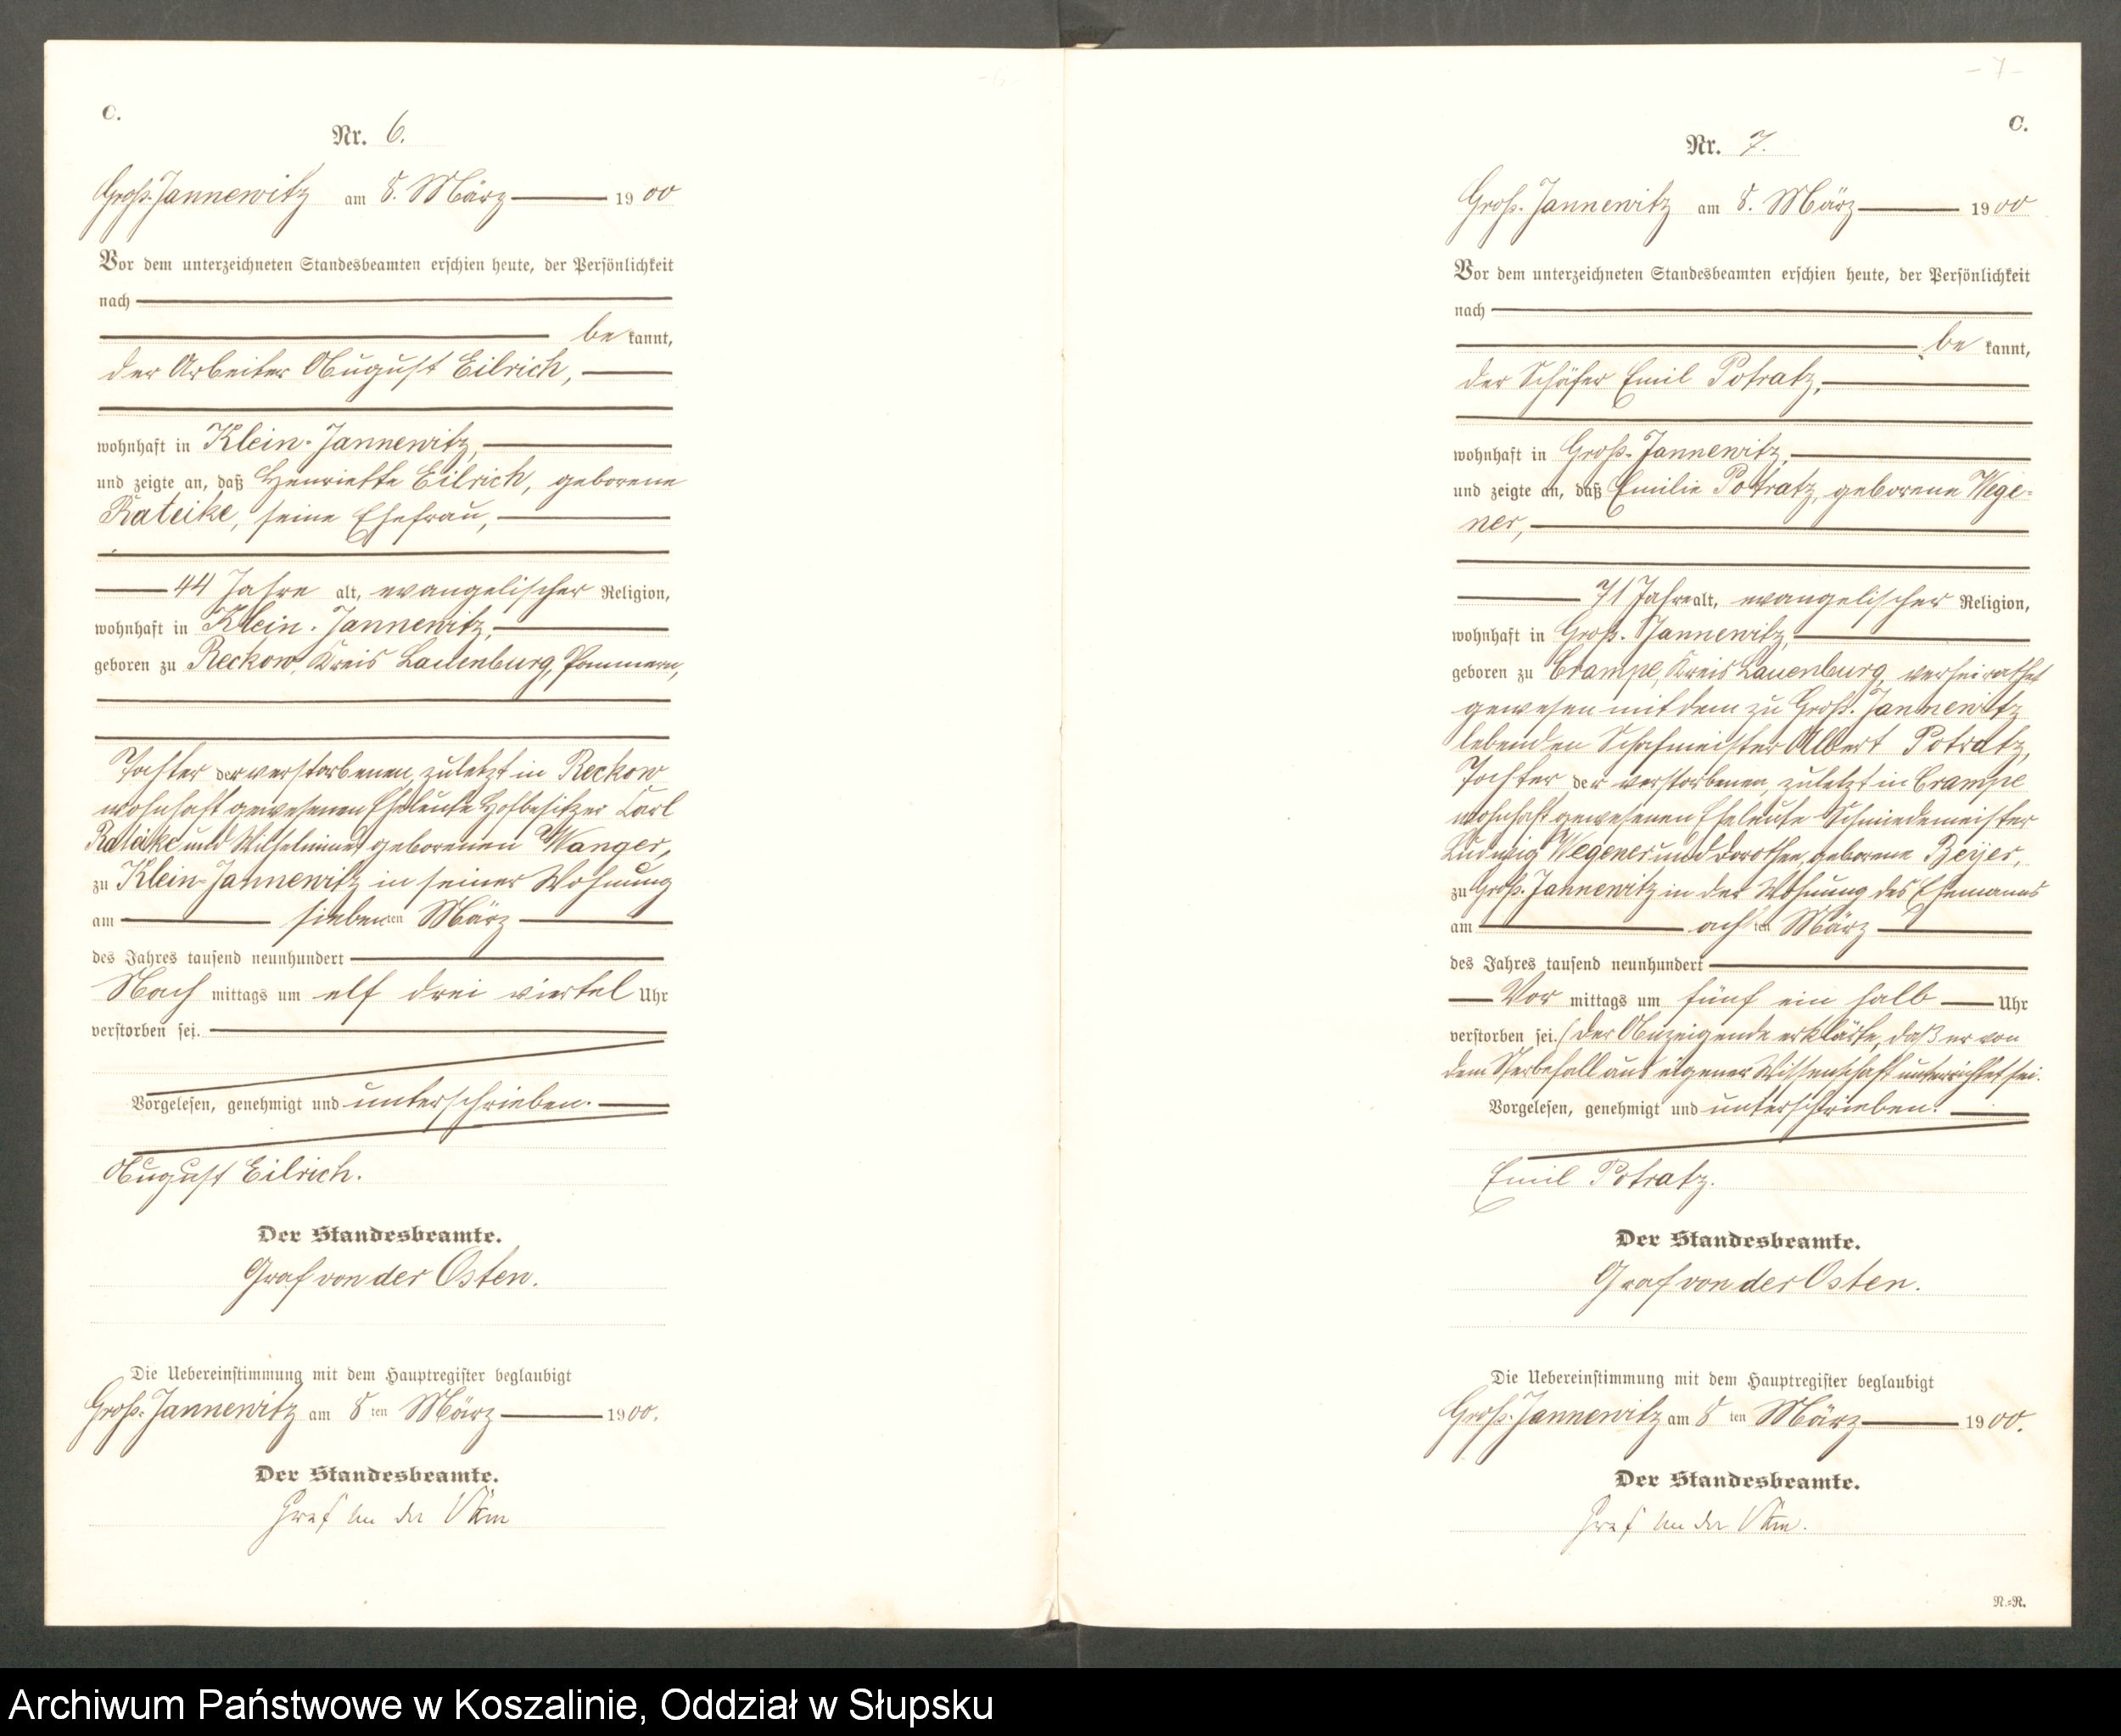 - 6 -
C.
Nr. 6.
Groß-Jannewitz am 8. März 1900
Vor dem unterzeichneten Standesbeamten erschien heute, der Persönlichkeit
nach
bekannt,
der Arbeiter August Eilrich,
wohnhaft in Klein-Jannewitz,
und zeigte an, daß Henriette Eilrich, geborene
Rateike, seine Ehefrau,
44 Jahre alt, evangelischer Religion,
wohnhaft in Klein-Jannewitz,
geboren zu Reckow, Kreis Lauenburg, Pommern,
Tochter der verstorbenen, zuletzt in Reckow
wohnhaft gewesenen Eheleute Hofbesitzer Carl
Rateike und Wilhelmine geborenen Wanger,
zu Klein-Jannewitz in seiner Wohnung
am siebenten März
des Jahres tausend neunhundert
Nach mittags um elf drei viertel Uhr
verstorben sei.
Vorgelesen, genehmigt und unterschrieben.
August Eilrich.
Der Standesbeamte.
Graf von der Osten.
Die Uebereinstimmung mit dem Hauptregister beglaubigt
Groß-Jannewitz am 8ten März 1900.
Der Standesbeamte.
Graf von der Osten
- 7 -
C.
Nr. 7.
Groß-Jannewitz am 8. März 1900
Vor dem unterzeichneten Standesbeamten erschien heute, der Persönlichkeit
nach
bekannt,
der Schäfer Emil Potratz,
wohnhaft in Groß-Jannewitz,
und zeigte an, daß Emilie Potratz, geborene Wege-
ner,
71 Jahre alt, evangelischer Religion,
wohnhaft in Groß-Jannewitz,
geboren zu Crampe, Kreis Lauenburg, verheirathet
gewesen mit dem zu Groß-Jannewitz
lebenden Schafmeister Albert Potratz,
Tochter der verstorbenen, zuletzt in Crampe
wohnhaft gewesenen Eheleute Schmiedemeister
Ludwig Wegener und Dorothea, geborene Beyer,
zu Groß-Jannewitz in der Wohnung des Ehemanns
am achten März
des Jahres tausend neunhundert
Vor mittags um fünf ein halb Uhr
verstorben sei. Der Anzeigende erklärte, daß er von
dem Sterbefall aus eigener Wissenschaft unterrichtet sei.
Vorgelesen, genehmigt und unterschrieben.
Emil Potratz.
Der Standesbeamte.
Graf von der Osten.
Die Uebereinstimmung mit dem Hauptregister beglaubigt
Groß-Jannewitz am 8ten März 1900.
Der Standesbeamte.
Graf von der Osten.
N.=R.
Archiwum Państwowe w Koszalinie, Oddział w Słupsku